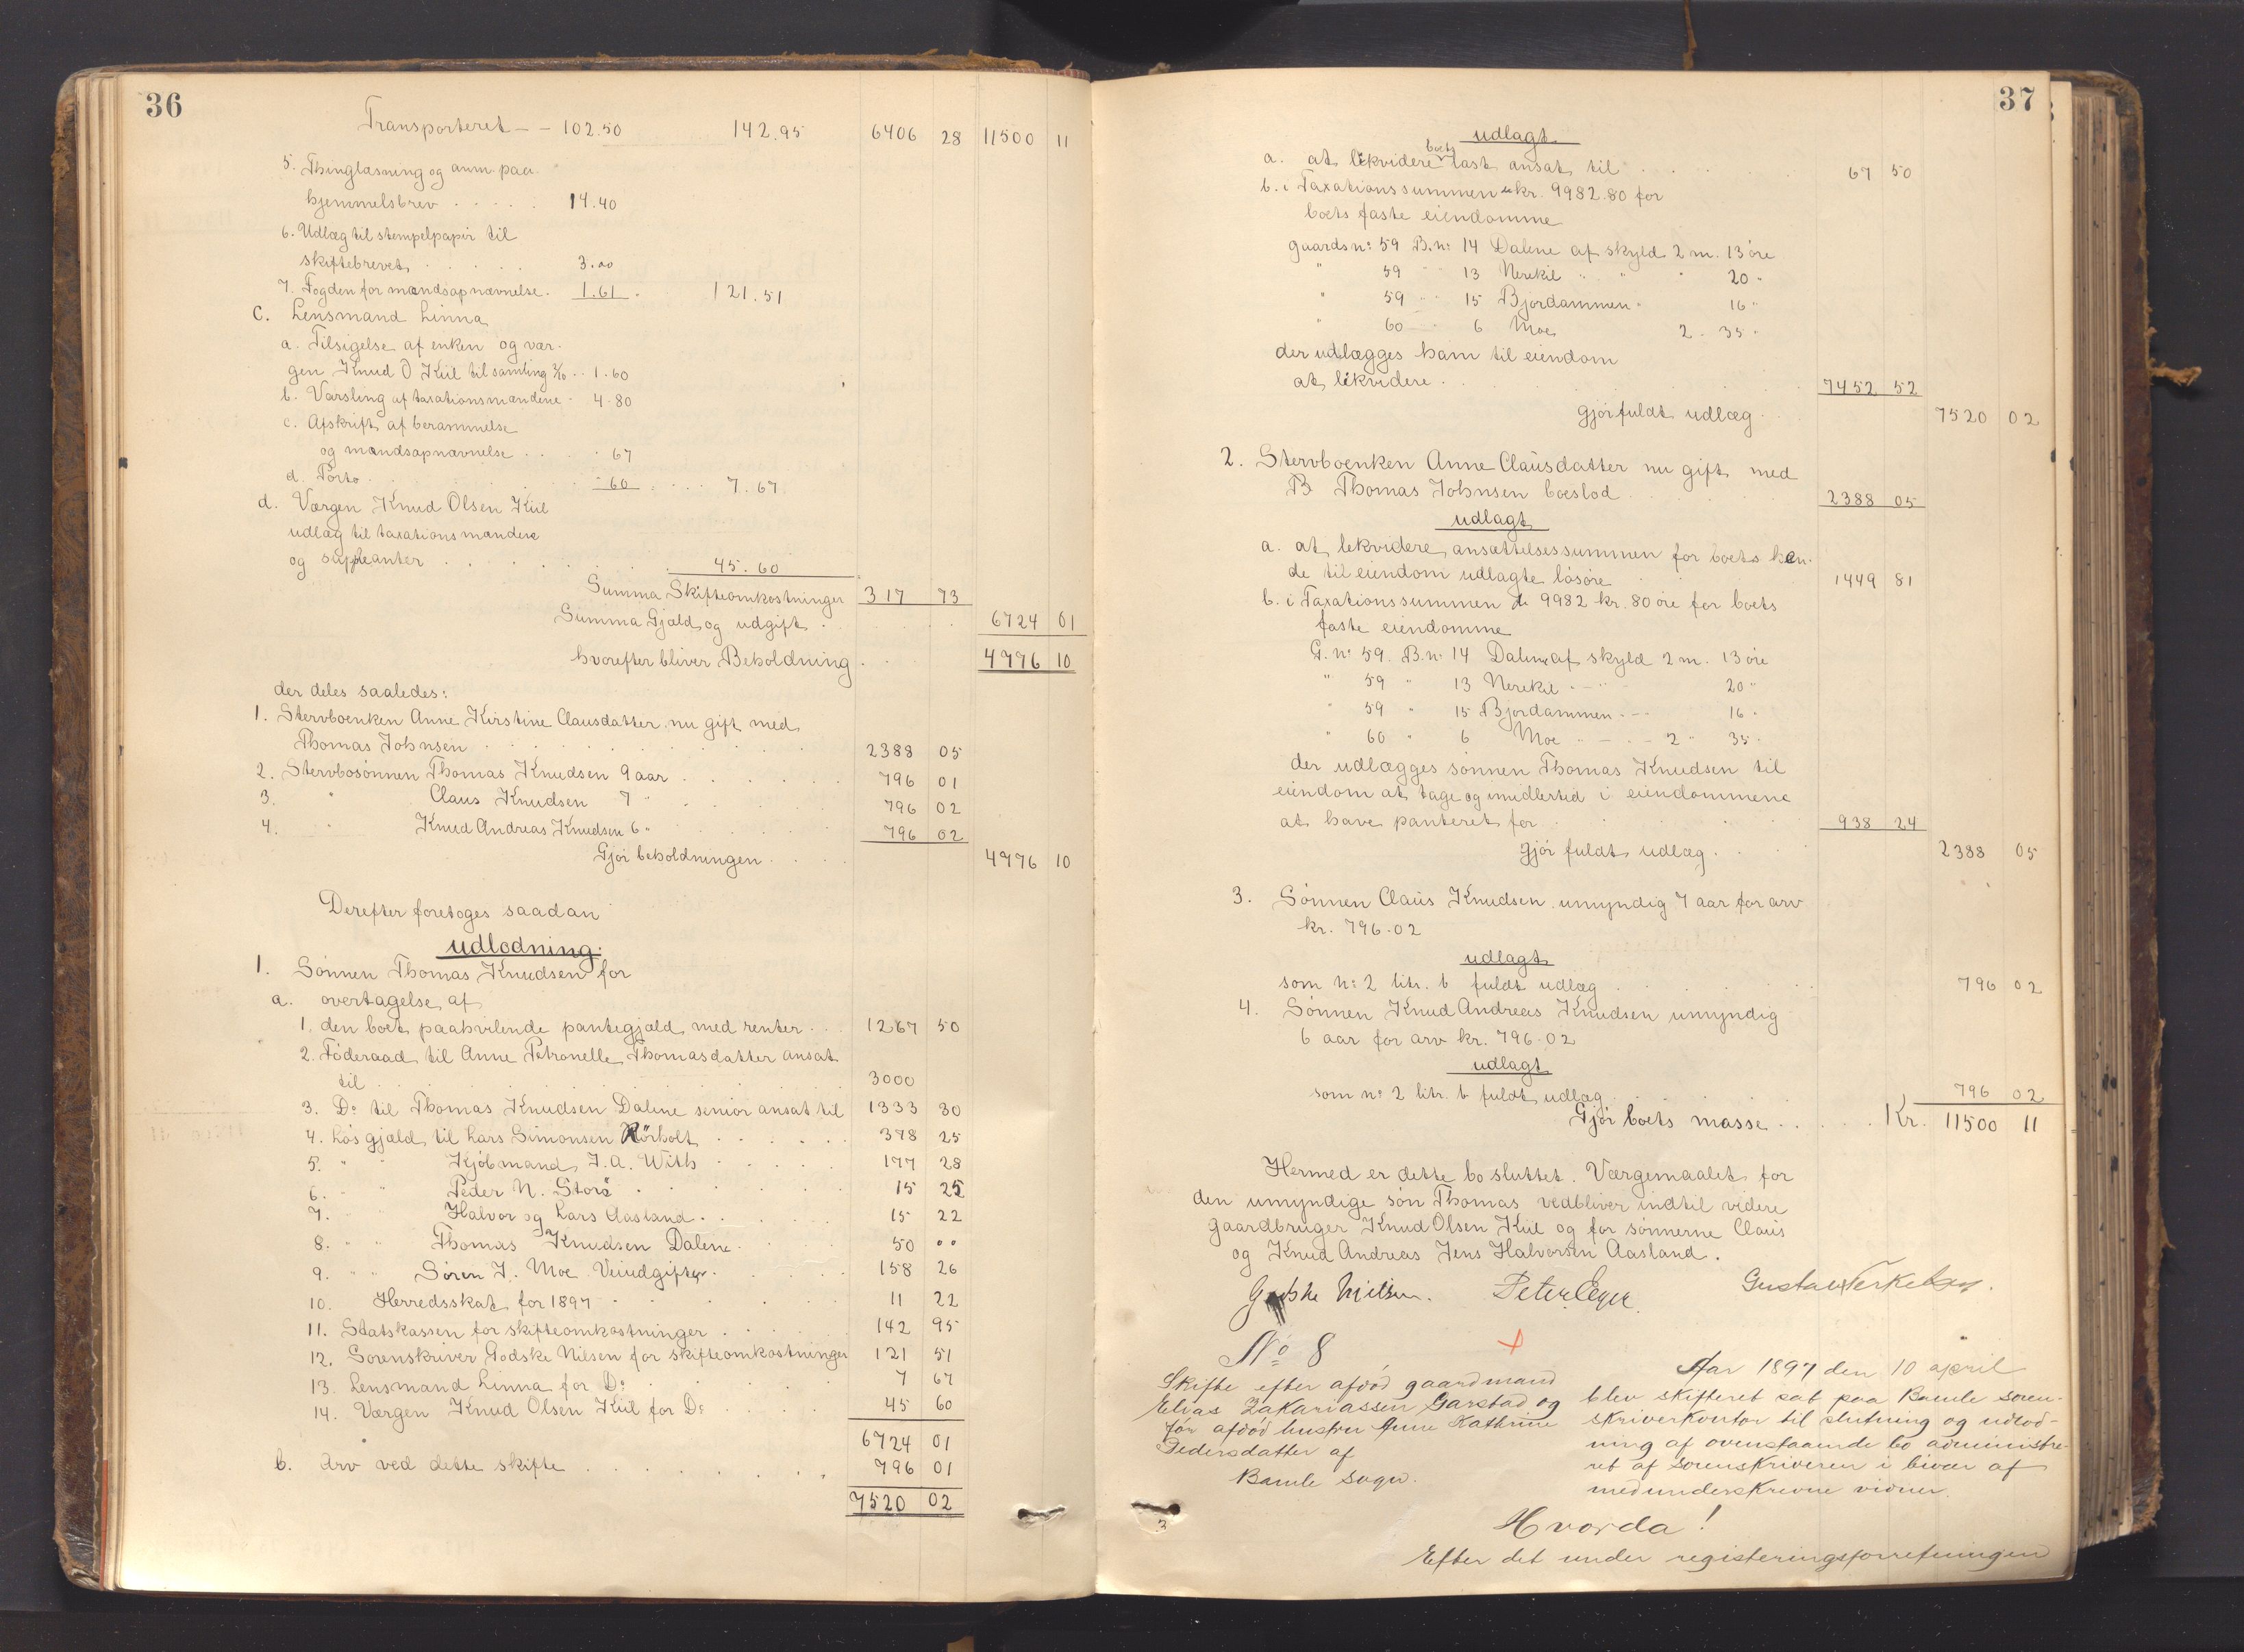 36
Transporteret - - 102.50 142.95 6406 28 11500 11
5. Thinglæsning og anm. paa
hjemmelsbrev . . . . . 14.40
6. Udlæg til stempelpapir til
skiftebrevet . . . . . 3.00
7. Fogden for mandsopnævnelse . 1.61 . 121.51
C. Lensmand Linna
a. Tilsigelse af enken og vær-
gen Knud O Kiil til samling . . 1.60
b. Varsling af taxationsmændene . 4.80
c. Afskrift af berammelse
og mandsopnævnelse . . . . 67
d. Porto . . . . . . 60 . . . . 7.67
d. Værgen Knud Olsen Kiil
udlæg til taxationsmændene
og supleanter . . . . . . 45.60
Summa Skifteomkostninger 317 73
Summa Gjæld og udgift . . . . 6724 01
hvorefter bliver Beholdning . . . 4776 10
der deles saaledes:
1. Stervboenken Anne Kirstine Clausdatter nu gift med
Thomas Johnsen . . . . . . . . . 2388 05
2. Stervbosønnen Thomas Knudsen 9 aar . . . . . . 796 01
3. " Claus Knudsen 7 " . . . . . 796 02
4. " Knud Andreas Knudsen 6 " . . . . . 796 02
Gjør beholdningen . . . . 4776 10
Derefter foretoges saadan
udlodning:
1. Sønnen Thomas Knudsen for
a. overtagelse af
1. den boet paahvilende pantegjæld med renter . . . 1267 50
2. Føderaad til Anne Petronelle Thomasdatter ansat
til . . . . . . . . . . . 3000
3. Do til Thomas Knudsen Dalene senior ansat til 1333 30
4. Løs gjæld til Lars Simonsen Rörholt . . . . . . 378 25
5. " " Kjøbmand J. A. With . . . . . 177 28
6. " " Peder N. Storö . . . . . . 15 25
7. " " Halvor og Lars Aasland . . . . . 15 22
8. " " Thomas Knudsen Dalene . . . . 50 00
9. " " Søren J. Moe Veiudgifter . . . . . 158 26
10. Herredsskat for 1897 . . . . . . 11 22
11. Statskassen for skifteomkostninger . . . . 142 95
12. Sorenskriver Godske Nilsen for skifteomkostninger 121 51
13. Lensmand Linna for Do . . . . . . 7 67
14. Værgen Knud Olsen Kiil for Do . . . . 45 60
6724 01
b. Arv ved dette skifte . . . . . . . . 796 01
7520 02
37
udlagt
a. at likvidere boets last ansat til . . . . . . 67 50
b. i Taxationssummen kr. 9982.80 for
boets faste eiendomme
gaards no: 59 B.no: 14 Dalene af skyld 2 m. 13 øre
" 59 " " 13 Nerekil " " " 20 "
" 59 " " 15 Bjordammen " 16 "
" 60 " 6 Moe 2 " 35 "
der udlægges ham til eiendom
at likvidere . . . . . . . 7452 52
gjør fuldt udlæg . . . 7520 02
2. Stervboenken Anne Clausdatter nu gift med
Thomas Johnsen boeslod . . . . . . 2388 05
udlagt
a. at likvidere ansættelsessummen for boets hen-
de til eiendom udlagte løsøre . . . . . . 1449 81
b. i Taxationssummen de 9982 kr. 80 øre for boets
faste eiendomme
G. no 59. B. no 14 Dalene af skyld 2 m. 13 øre
" 59 " 13 Nerekil " - " 20 "
" 59 " 15 Bjordammen - - 16 "
" 60 " 6 Moe " - " - 2 " 35 "
der udlægges sønnen Thomas Knudsen til
eiendom at tage og imidlertid i eiendommene
at have panteret for . . . . . . . 938 24
gjør fuldt udlæg . . . . 2388 05
3. Sønnen Claus Knudsen umyndig 7 aar for arv
kr. 796.02
udlagt
som no: 2 litr. b fuldt udlæg . . . . . . . 796 02
4. Sønnen Knud Andreas Knudsen umyndig
6 aar for arv kr. 796.02
udlagt
som no: 2 litr. b fuldt udlæg . . . . . . . 796 02
Gjør boets masse . . . . . Kr. 11500 11
Hermed er dette bo sluttet. Værgemaalet for
den umyndige søn Thomas vedbliver indtil videre
gaardbruger Knud Olsen Kiil og for sønnerne Claus
og Knud Andreas Jens Halvorsen Aasland.
Godske Nielsen. Peter Eeger. Gustav Terkelsen.
No 8
Skifte efter afdød gaardmand
Elias Zakariassen Garstad og
før afdød hustru Anne Kathrine
Pedersdatter af
Bamle sogn.
Aar 1897 den 10 april
blev skifteret sat paa Bamle soren-
skriverkontor til slutning og udlod-
ning af ovenstaaende bo administre-
ret af sorenskriveren i bivær af
medunderskrevne vidner.
Hvorda!
Efter det under registeringsforretningen
3